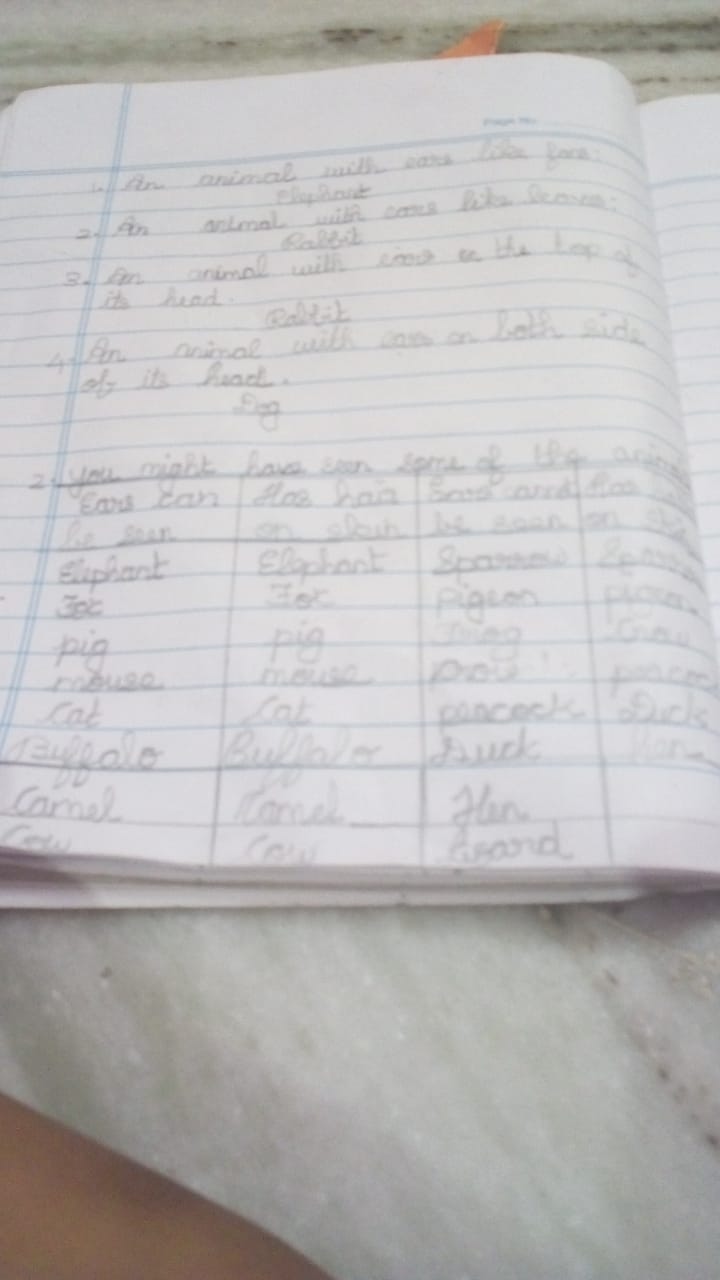 Page No.
1. An animal with ears like fans.
Elephant
2. An animal with ears like leaves.
Rabbit
3. An animal with ears on the top of
its head.
Rabbit
4. An animal with ears on both side
of its head.
Dog
2. you might have seen some of the
Ears can Has hair Ears Has
be seen on be seen on
Elephant Elephant Sparrow
Fox Fox pigeon pigeon
pig pig Frog Crow
mouse mouse crow peacock
Cat Cat peacock Duck
Buffalo Buffalo Duck Hen
Camel Camel Hen
Cow Cow